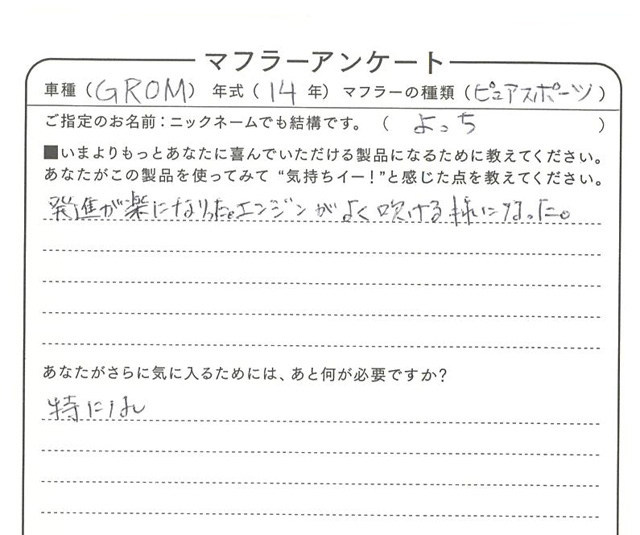 マフラーアンケート
車種（GROM） 年式（14年） マフラーの種類（ピュアスポーツ）
ご指定のお名前：ニックネームでも結構です。（よっち）
■いまよりもっとあなたに喜んでいただける製品になるために教えてください。
あなたがこの製品を使ってみて“気持ちイー！”と感じた点を教えてください。
発進が楽になった。エンジンがよく吹ける様になった。
あなたがさらに気に入るためには、あと何が必要ですか？
特になし